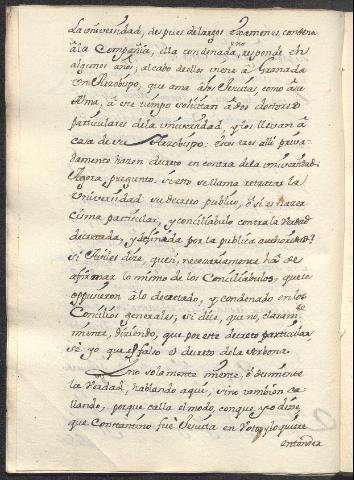 La Universidad, despues de largos examenes condena
â la Compañia, ella condenada, y no responde en
algunos años, al cabo de ellos viene â Granada
con Arzobispo, que ama â los Jesuitas como â su
Alma, â este tiempo solicitan â dos doctores
particulares de la Universidad, y los llevan â
casa de su Arzobispo: estos tres alli priva-
damente hazen decreto en contra de la Universidad:
Agora pregunto si esto se llama retratar la
Universidad su decreto publico, ô si es hazer
cisma particular, y conciliabulo contra la verdad
decretada, y definida por la publica authoridad?
si dize, que si, necesariamente hâ de
afirmar lo mismo de los Conciliabulos, que se
oppusieron â lo decretado, y condenado en los
Concilios generales; si dize, que no, claram.te
miente, diziendo, que por este decreto particular
se yo, que es falso el decreto de la Sorbona.
Y no solamente miente, ô desmiente
la Verdad, hablando aqui, sino tambien ca-
llando, porque calla el modo, con que yo dixe
que Constantino fuè Jesuita en Voto, y lo quiere
entender